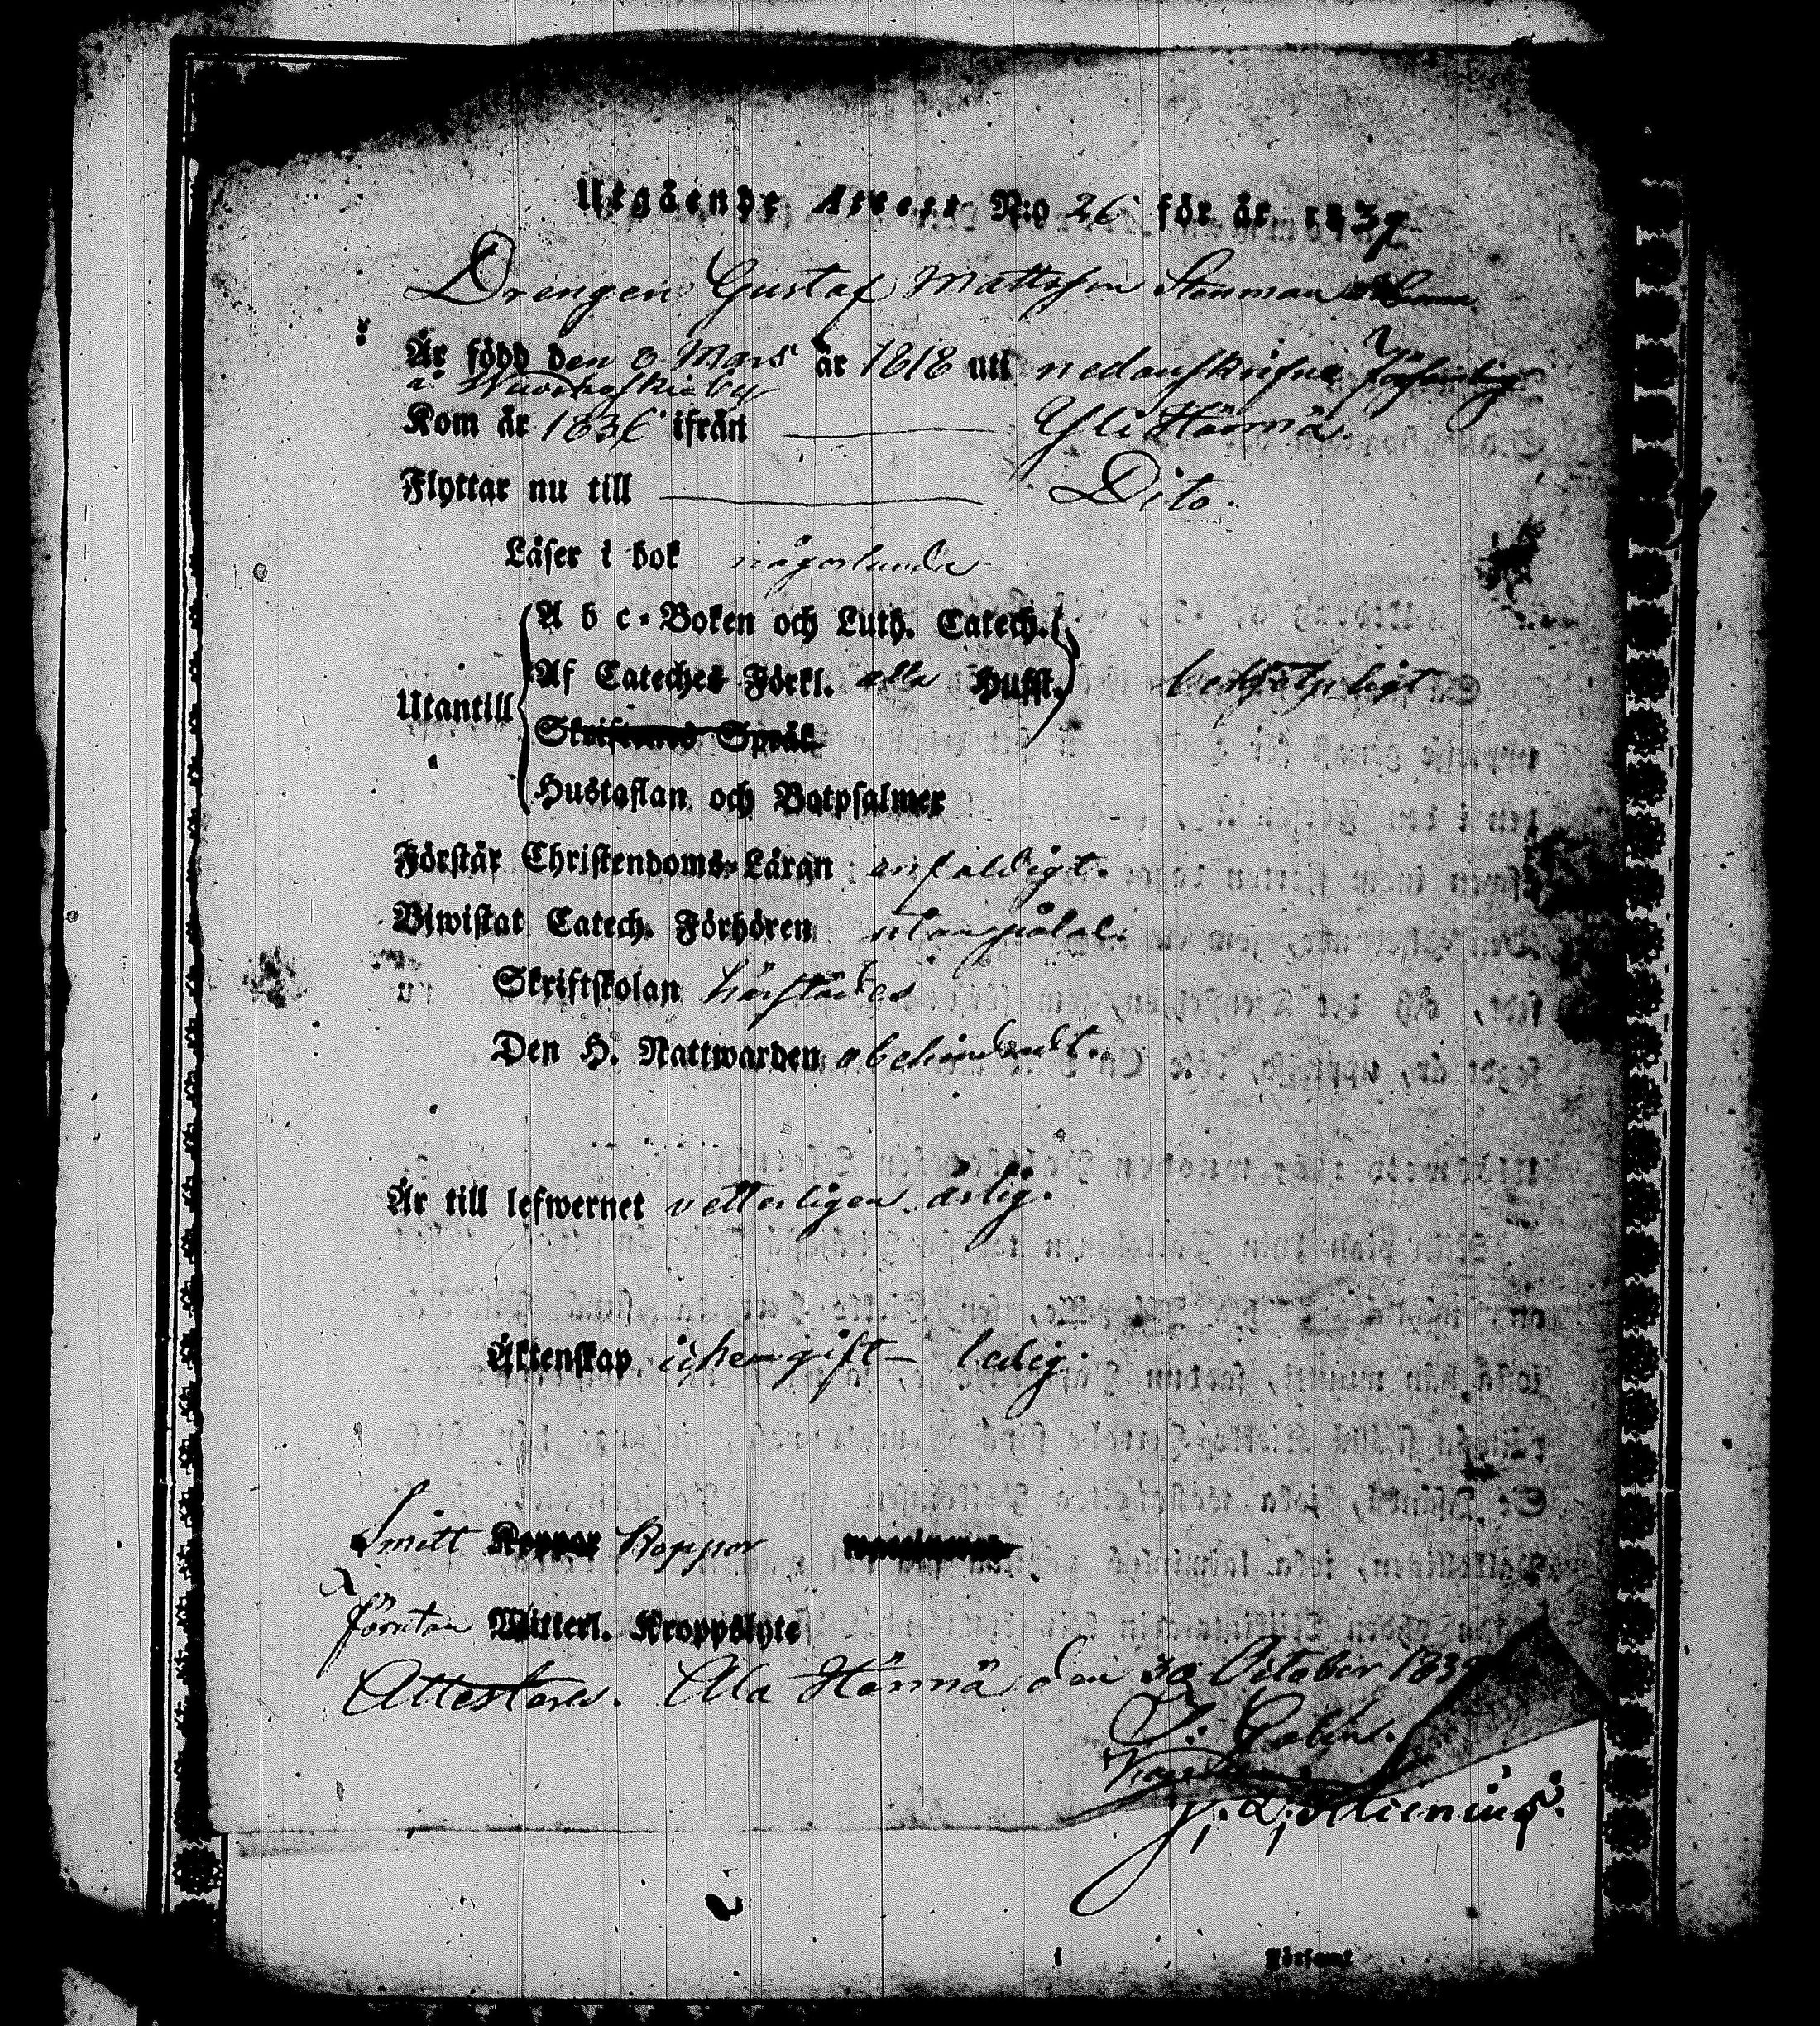 Utgående Attest N:o 26 för år 1839
Drengen Gustaf Mattsson Stenman
Är född den 8 Mars år 1818 uti nedanskrifne församling
å by
Kom år 1836 ifrån Yli Härmä.
Flyttar nu till Dito.
Läser i bok någorlunda
Utantill
A b c-Boken och Luth. Catech.
Af Cateches Förkl. alla Hufst.
Skriftenes Språk
Hustaflan och Botpsalmer
Förstår Christendoms-Läran enfaldigt.
Biwistat Catech. Förhören utan påtal.
Skriftskolan härstädes
Den H. Nattwarden obehindradt.
Är till lefwernet vetterligen ärlig.
Äktenskap icke gift – ledig.
Smitt Koppor Koppor
förutan Witterl. Kroppslyte
Attesteras. Ala Härmä den 30 October 1839
J.
Kapellan.
J. L.
i Församl